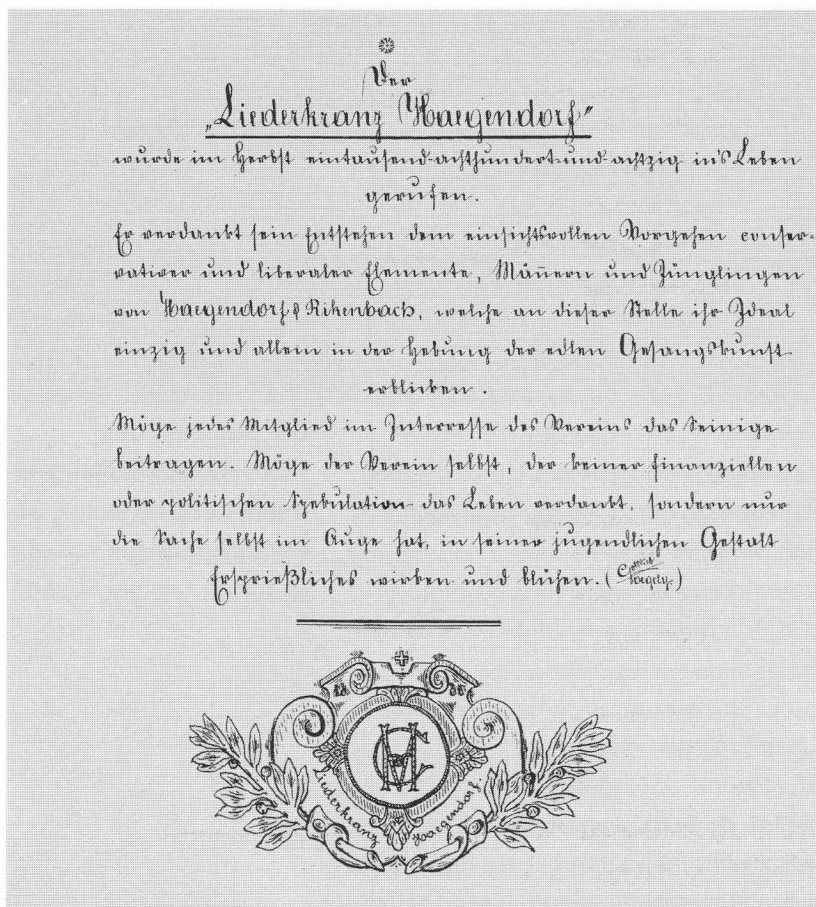 Der
„Liederkranz Haegendorf"
wurde im Herbst eintausend-achthundert-und-achtzig in's Leben
gerufen.
Er verdankt sein Entstehen dem einsichtsvollen Vorgehen conser-
vativer und liberaler Elemente, Männern und Jünglingen
von Haegendorf & Rikenbach, welche an dieser Stelle ihr Ideal
einzig und allein in der Hebung der edlen Gesangskunst
erblicken.
Möge jedes Mitglied im Interresse des Vereins das Seinige
beitragen. Möge der Verein selbst, der keiner finanziellen
oder politischen Spekulation das Leben verdankt, sondern nur
die Sache selbst im Auge hat, in seiner jugendlichen Gestalt
Ersprießliches wirken und blühen. (
18
Liederkranz Haegendorf.